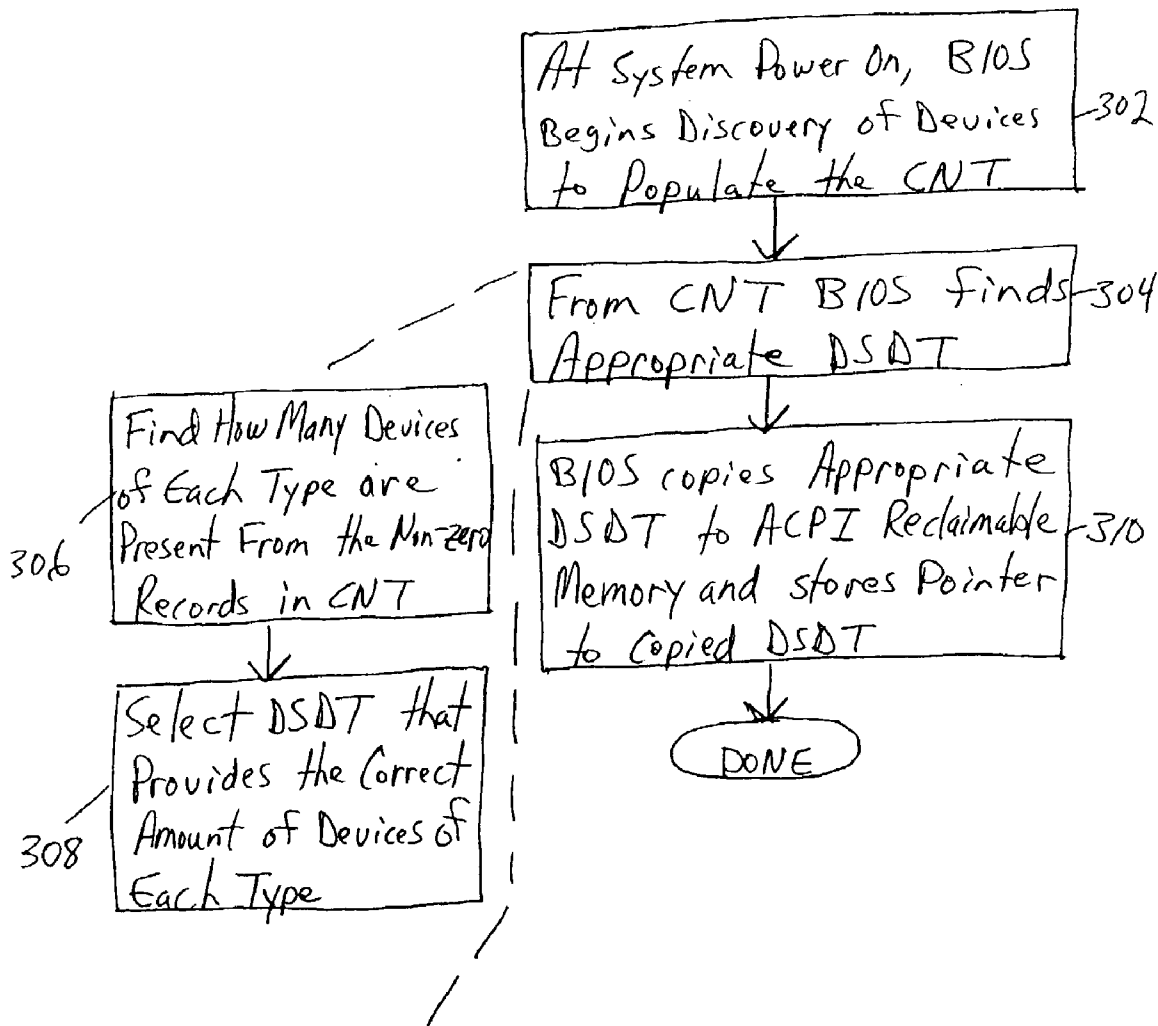 At System Power On, BIOS
Begins Discovery of Devices
to Populate the CNT
302
From CNT BIOS finds
Appropriate DSDT
304
Find How Many Devices
of Each Type are
Present From the Non-zero
Records in CNT
306
Select DSDT that
Provides the Correct
Amount of Devices of
Each Type
308
BIOS copies Appropriate
DSDT to ACPI Reclaimable
Memory and stores Pointer
to Copied DSDT
310
DONE